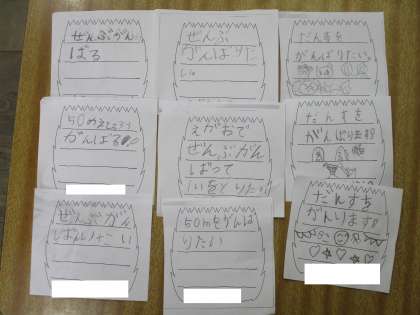 ぜんぶがん
ばる
ぜんぶ
がんばりた
い
だんすを
がんばりたい。
がんばる
えがおで
ぜんぶがん
ばって
だんすを
がんばります
ぜんぶがん
50mをがんば
りたい
だんすを
がんばります